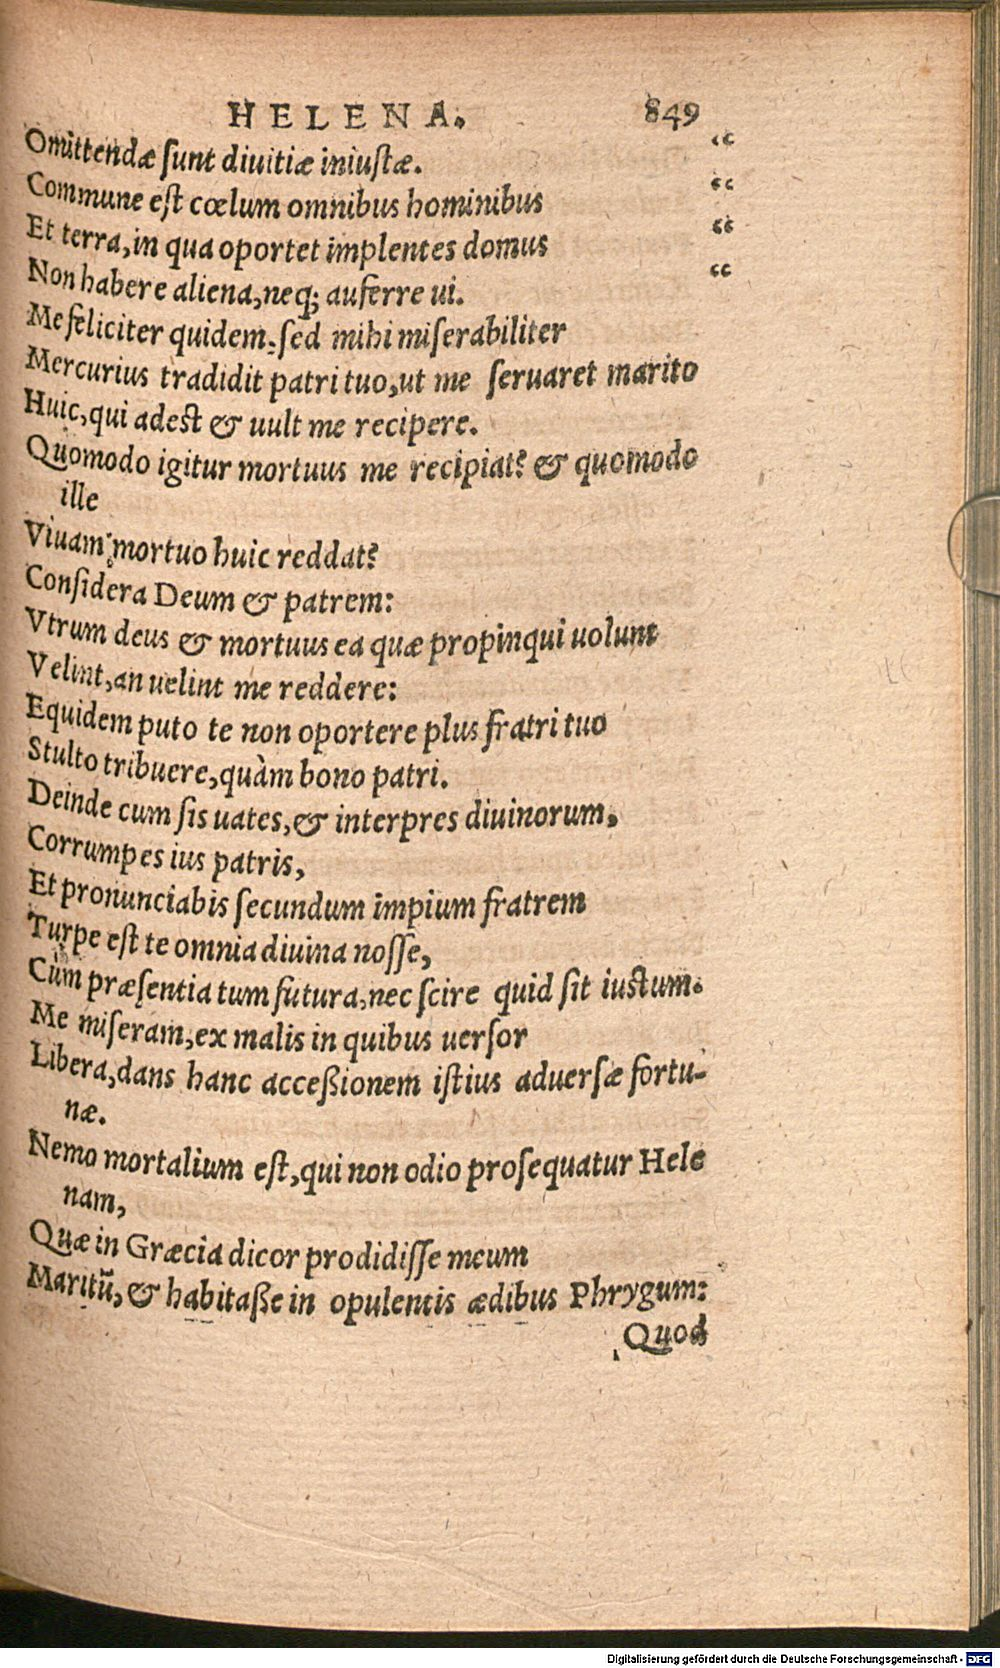 HELENA. 849
Omittendæ sunt diuitiæ iniustæ. “
Commune est cœlum omnibus hominibus “
Et terra, in qua oportet implentes domus “
Non habere aliena, neq; auferre ui. “
Me feliciter quidem, sed mihi miserabiliter
Mercurius tradidit patri tuo, ut me seruaret marito
Huic, qui adest & uult me recipere.
Quomodo igitur mortuus me recipiat? & quomodo
ille
Viuam mortuo huic reddat?
Considera Deum & patrem:
Vtrum deus & mortuus ea quæ propinqui uolunt
Velint, an uelint me reddere:
Equidem puto te non oportere plus fratri tuo
Stulto tribuere, quàm bono patri.
Deinde cum sis uates, & interpres diuinorum,
Corrumpes ius patris,
Et pronunciabis secundum impium fratrem
Turpe est te omnia diuina nosse,
Cùm præsentia tum futura, nec scire quid sit iustum.
Me miseram, ex malis in quibus uersor
Libera, dans hanc acceßionem istius aduersæ fortu-
næ.
Nemo mortalium est, qui non odio prosequatur Hele
nam,
Quæ in Græcia dicor prodidisse meum
Maritũ, & habitaße in opulentis ædibus Phrygum:
Quod
Digitalisierung gefördert durch die Deutsche Forschungsgemeinschaft - DFG